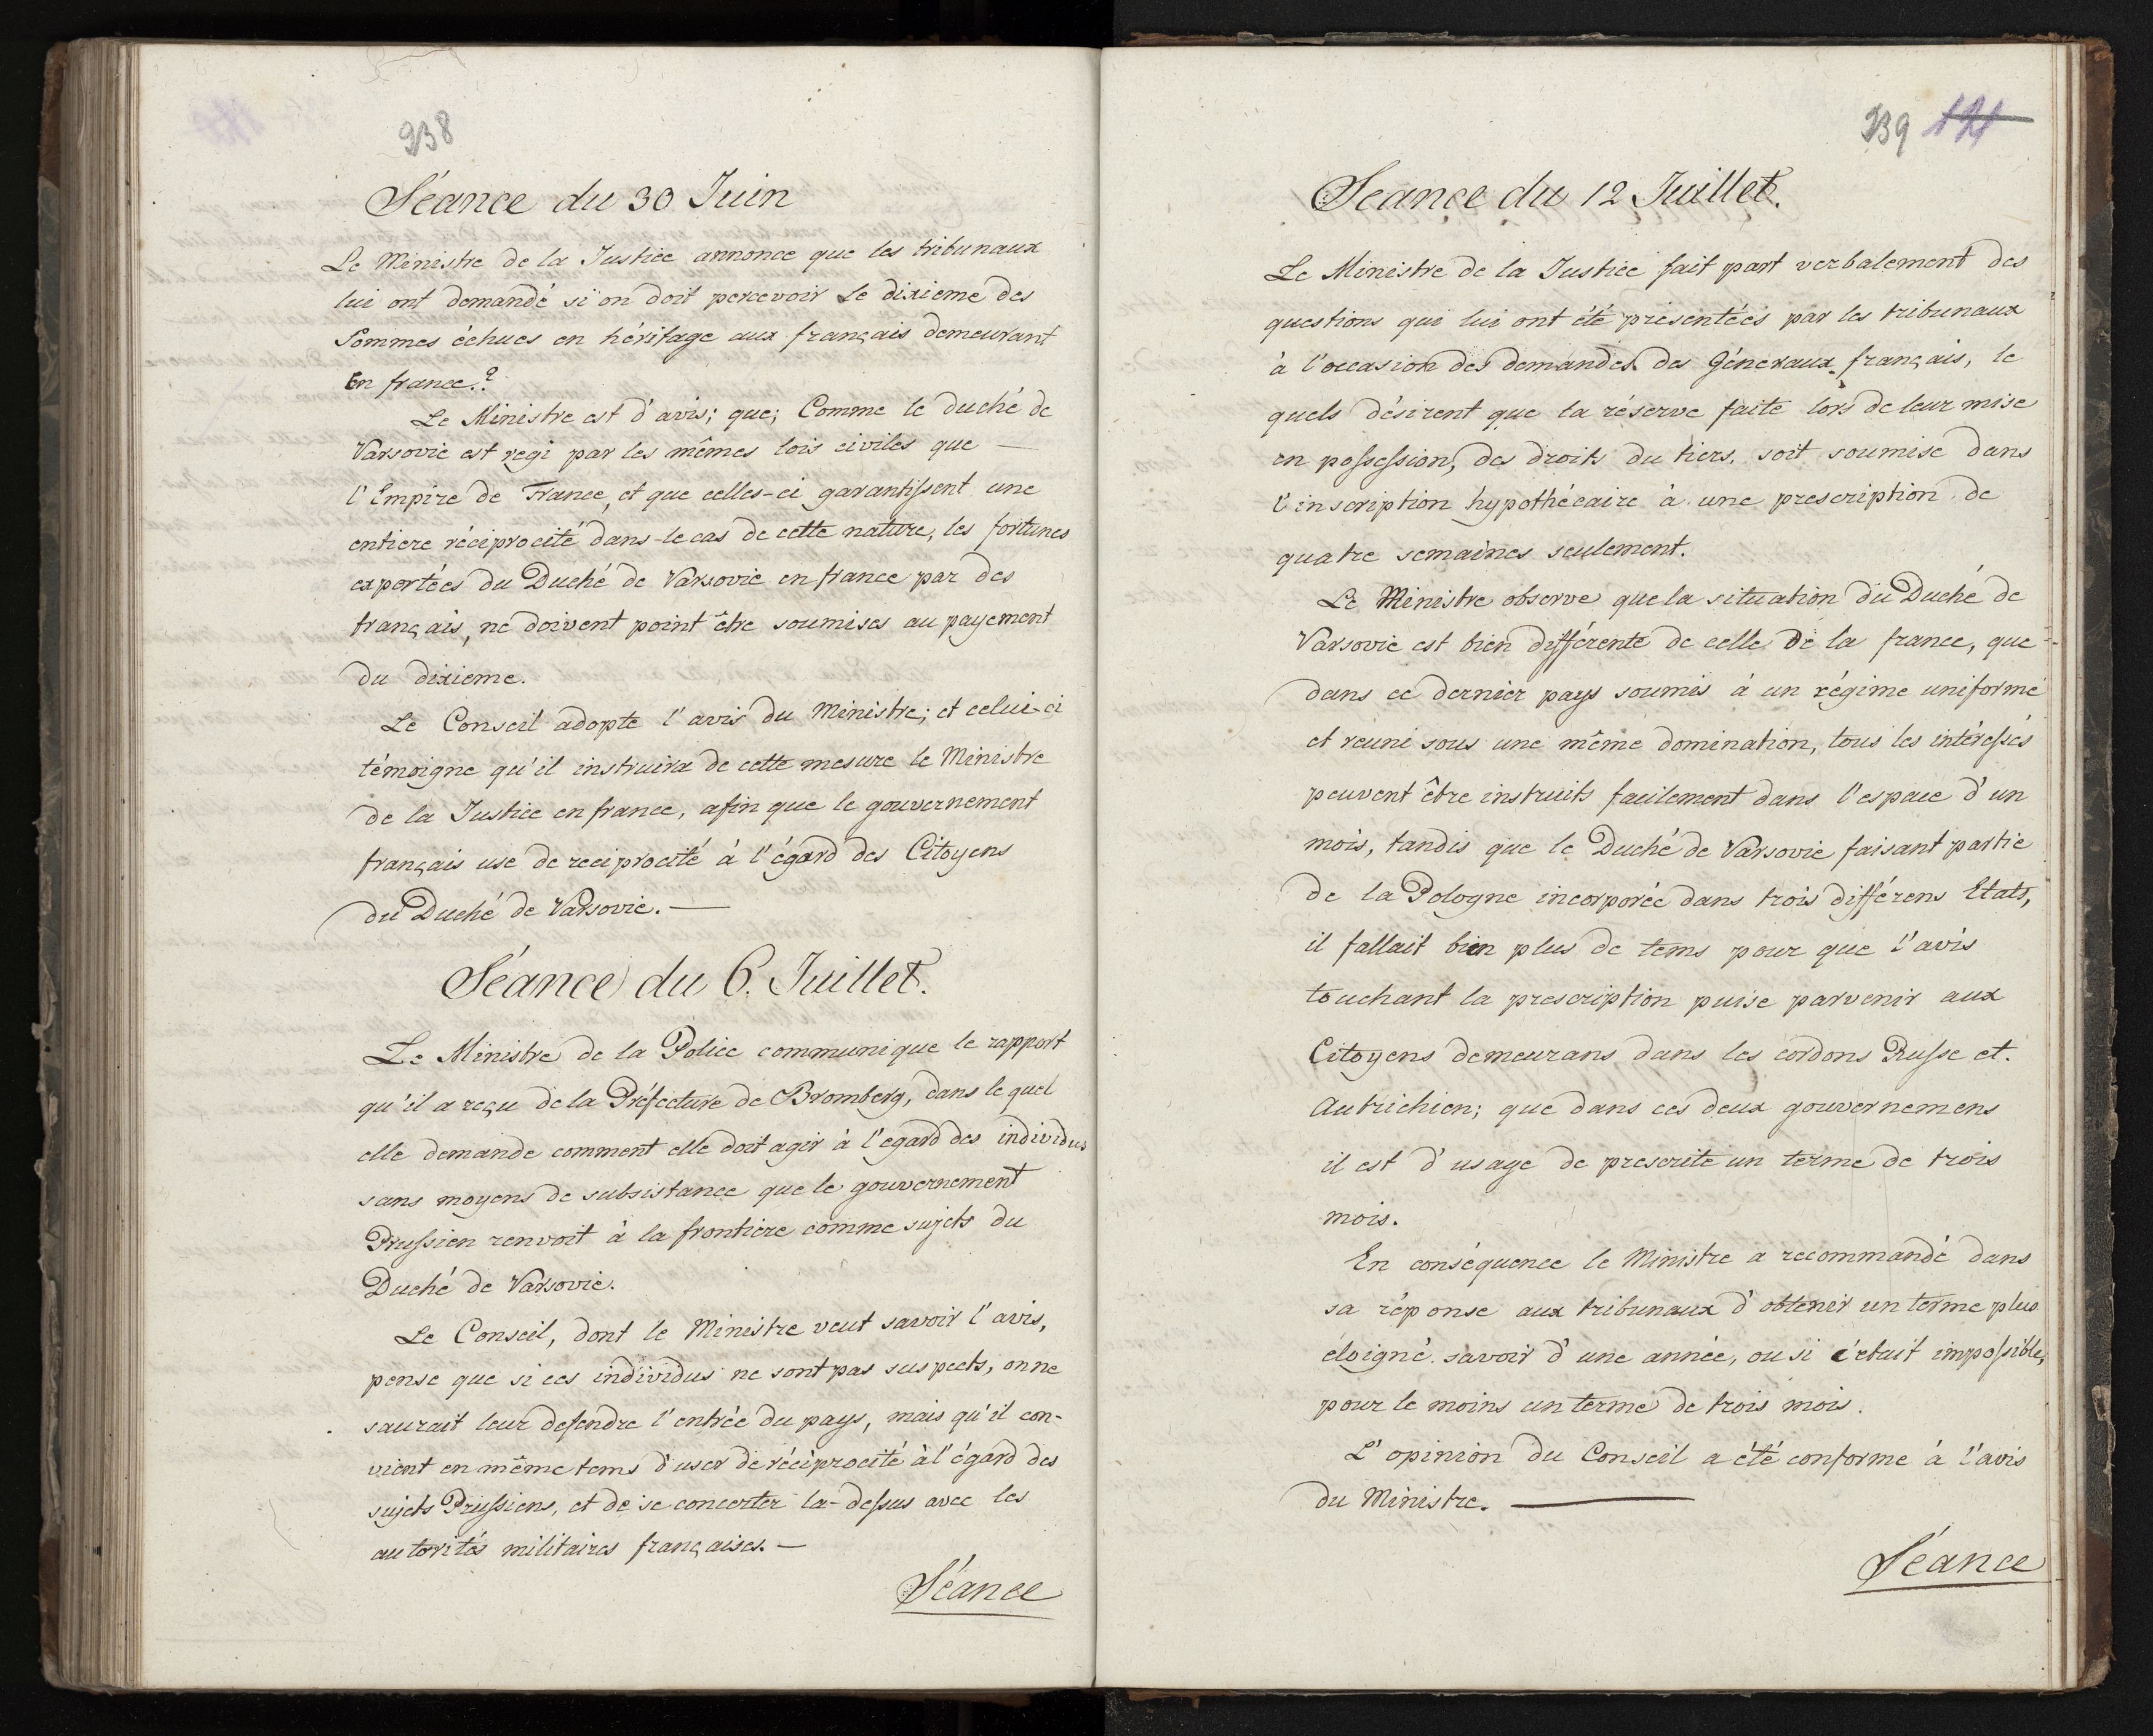 238
Séance du 30 Juin
Le Ministre de la Justice annonce que les tribunaux
lui ont demandé si on doit percevoir le dixieme des
Sommes échues en héritage aux français demeurant
En france.?
Le Ministre est d'avis; que; Comme le duché de
Varsovie est regi par les mêmes lois civiles que —
l'Empire de France, et que celles-ci garantissent une
entiere réciprocité dans le cas de cette nature, les fortunes
exportées du Duché de Varsovie en france par des
français, ne doivent point être soumises au payement
du dixieme.
Le Conseil adopte l'avis du Ministre; et celui-ci
témoigne qu'il instruira de cette mesure le Ministre
de la Justice en france, afin que le gouvernement
français use de reciprocité à l'égard des Citoyens
du Duché de Varsovie. —
Séance du 6. Juillet.
Le Ministre de la Police communique le rapport
qu'il a reçu de la Préfecture de Bromberg, dans le quel
elle demande comment elle doit agir à l'egard des individus
sans moyens de subsistance que le gouvernement
Prussien renvoit à la frontiere comme sujets du
Duché de Varsovie.
Le Conseil, dont le Ministre veut savoir l'avis,
pense que si ces individus ne sont pas suspects, on ne
saurait leur defendre l'entrée du pays, mais qu'il con-
vient en même tems d'user de réciprocité à l'égard des
sujets Prussiens, et de se concerter la-dessus avec les
autorités militaires françaises. —
Séance
239 121
Seance du 12 Juillet.
Le Ministre de la Justice fait part verbalement des
questions qui lui ont été présentées par les tribunaux
à l'occasion des demandes des Géneraux français, le
quels désirent que la réserve faite lors de leur mise
en possession, des droits du tiers, soit soumise dans
l'inscription hypothécaire à une prescription de
quatre semaines seulement.
Le Ministre observe que la situation du Duché de
Varsovie est bien différente de celle de la france, que
dans ce dernier pays soumis à un régime uniforme
et reuni sous une même domination, tous les intéressés
peuvent être instruits facilement dans l'espace d'un
mois, tandis que le Duché de Varsovie faisant partie
de la Pologne incorporée dans trois différens Etats,
il fallait bien plus de tems pour que l'avis
touchant la prescription puise parvenir aux
Citoyens demeurans dans les cordons Russe et.
Autrichien; que dans ces deux gouvernemens
il est d'usage de prescrite un terme de trois
mois.
En conséquence le Ministre a recommandé dans
sa réponse aux tribunaux d'obtenir un terme plus
éloigné. savoir d'une année, ou si c'etait impossible,
pour le moins un terme de trois mois.
L'opinion du Conseil a été conforme à l'avis
du Ministre. —
Séance